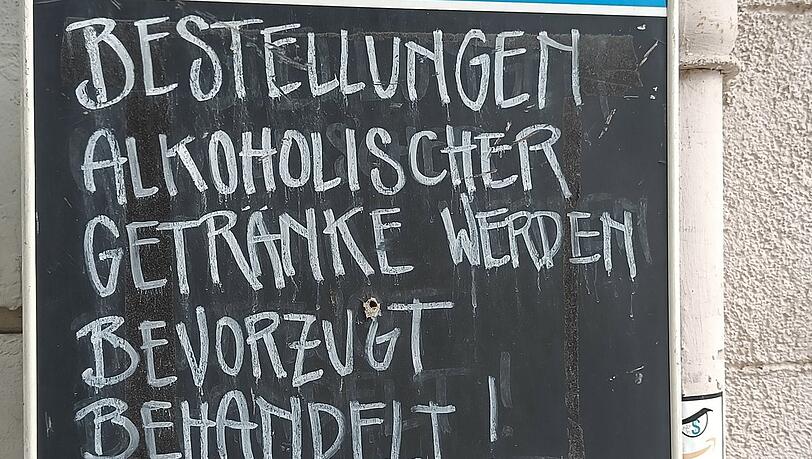 BESTELLUNGEN
ALKOHOLISCHER
GETRÄNKE WERDEN
BEVORZUGT
BEHANDELT!
S